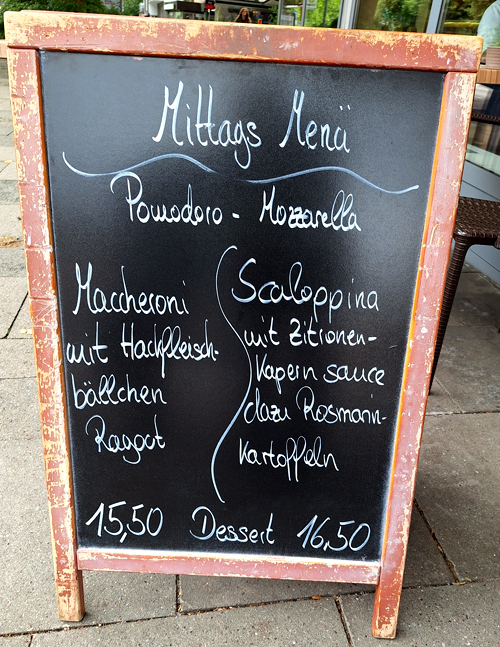 Mittags Menü
Pomodoro - Mozzarella
Maccheroni
mit Hackfleisch-
bällchen
Ragoot
Scaloppina
mit Zitronen-
Kapern sauce
dazu Rosmarin-
Kartoffeln
15,50 Dessert 16,50